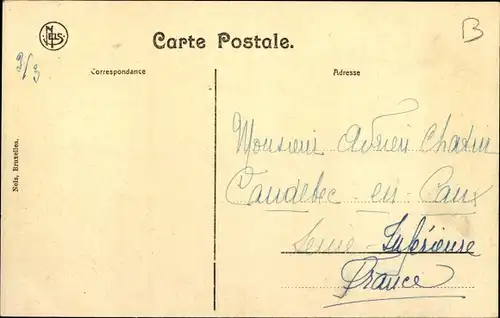 Nels
Carte Postale.
B
3/3
Correspondance
Adresse
Monsieur Adrien Chatin
Caudebec-en-Caux
Seine-Inférieure
France
Nels, Bruxelles.